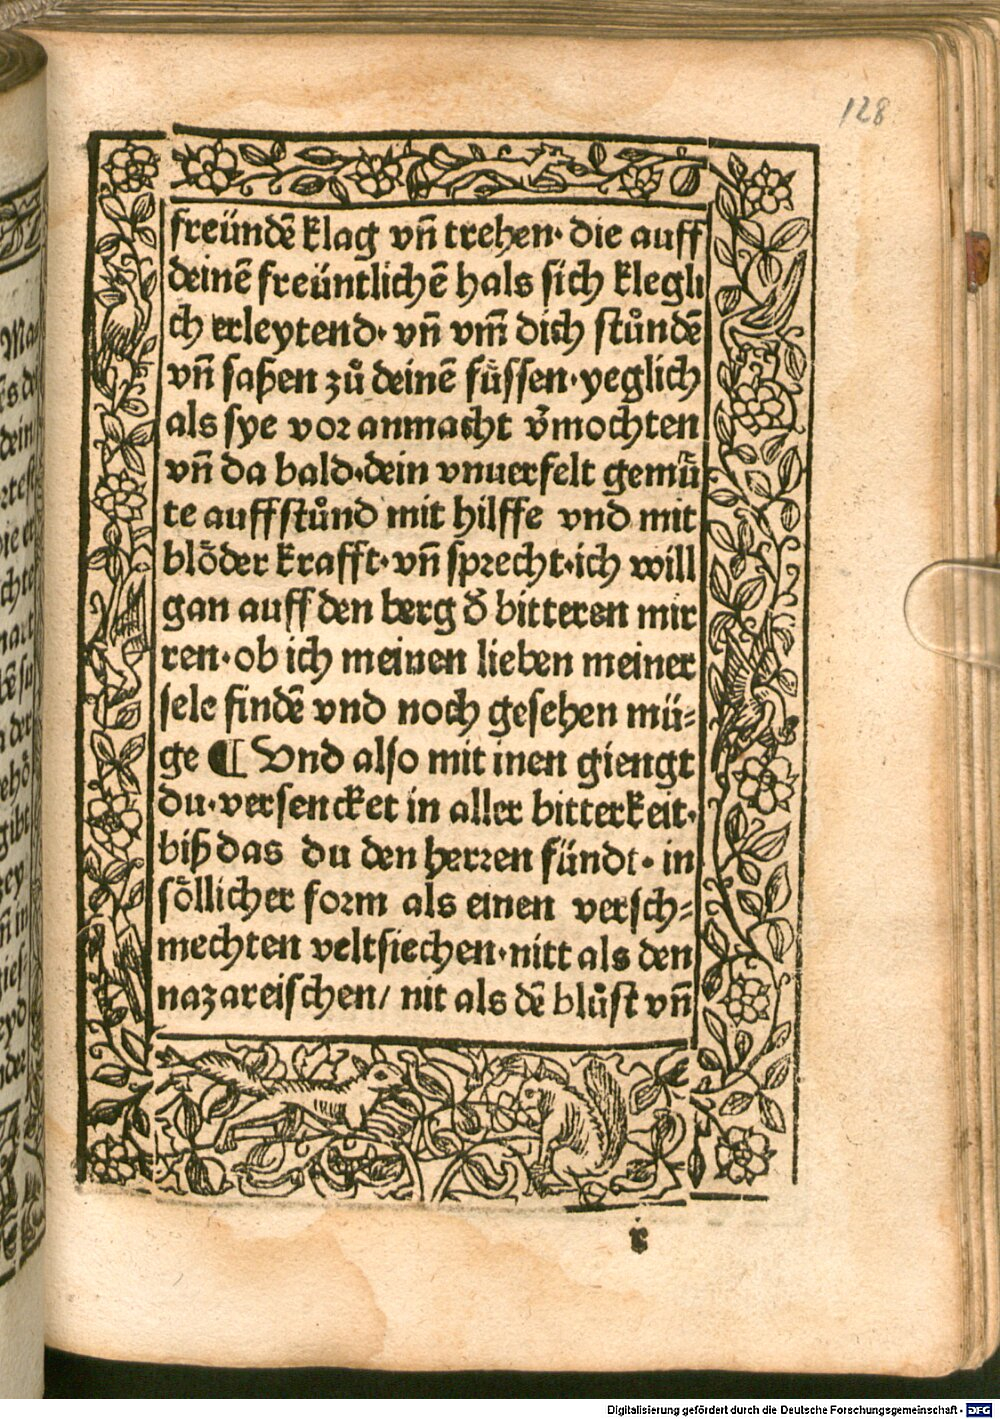 128
freündē klag vn̄ trehen· die auff
deinē freüntlichē hals sich klegli
ch erleytend· vn̄ vm̄ dich stůndē
vn̄ saßen zů deinē fu̎ssen·yeglich
als sye vor anmacht v̓mochten
vn̄ da bald·dein vnuerfelt gemǖ
te auffstůnd mit hilffe vnd mit
blöder krafft·vn̄ sprecht·ich will
gan auff den berg d̓ bitteren mir
ren·ob ich meinen lieben meiner
sele findē vnd noch gesehen mü⸗
ge ¶ Vnd also mit inen giengt
du·versencket in aller bitterkeit·
biß das du den herren fündt· in
söllicher form als einen versch⸗
mechten veltsiechen·nitt als den
nazareischen/ nit als dē blůst vn̄
r
Digitalisierung gefördert durch die Deutsche Forschungsgemeinschaft - DFG